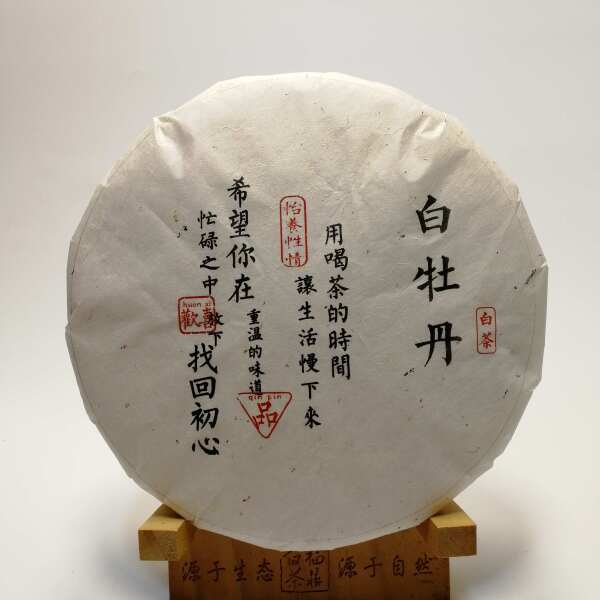 白牡丹
白茶
用喝茶的時間
讓生活慢下來
怡養性情
希望你在
重温的味道
忙碌之中
放下
找回初心
huan xi
歡喜
qin pin
品
源于生态
福鼎白茶
源于自然